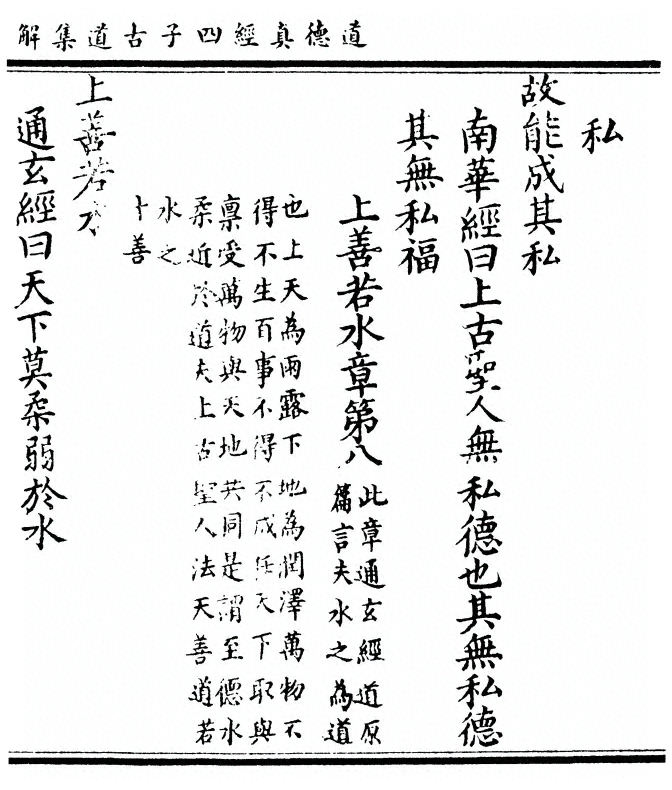 道德真經四子古道集解
私
故能成其私
南華經曰上古聖人無私德也其無私德
其無私福
上善若水章第八
此章通玄經道原
篇言夫水之為道
也上天為雨露下地為潤澤萬物不
得不生百事不得不成天下取與
稟受萬物與天地共同是謂至德水
柔近於道夫上古聖人法天善道若
水之
上善
上善若水
通玄經曰天下莫柔弱於水